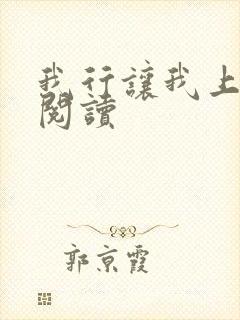 我行讓我上
閱讀
郭京霞